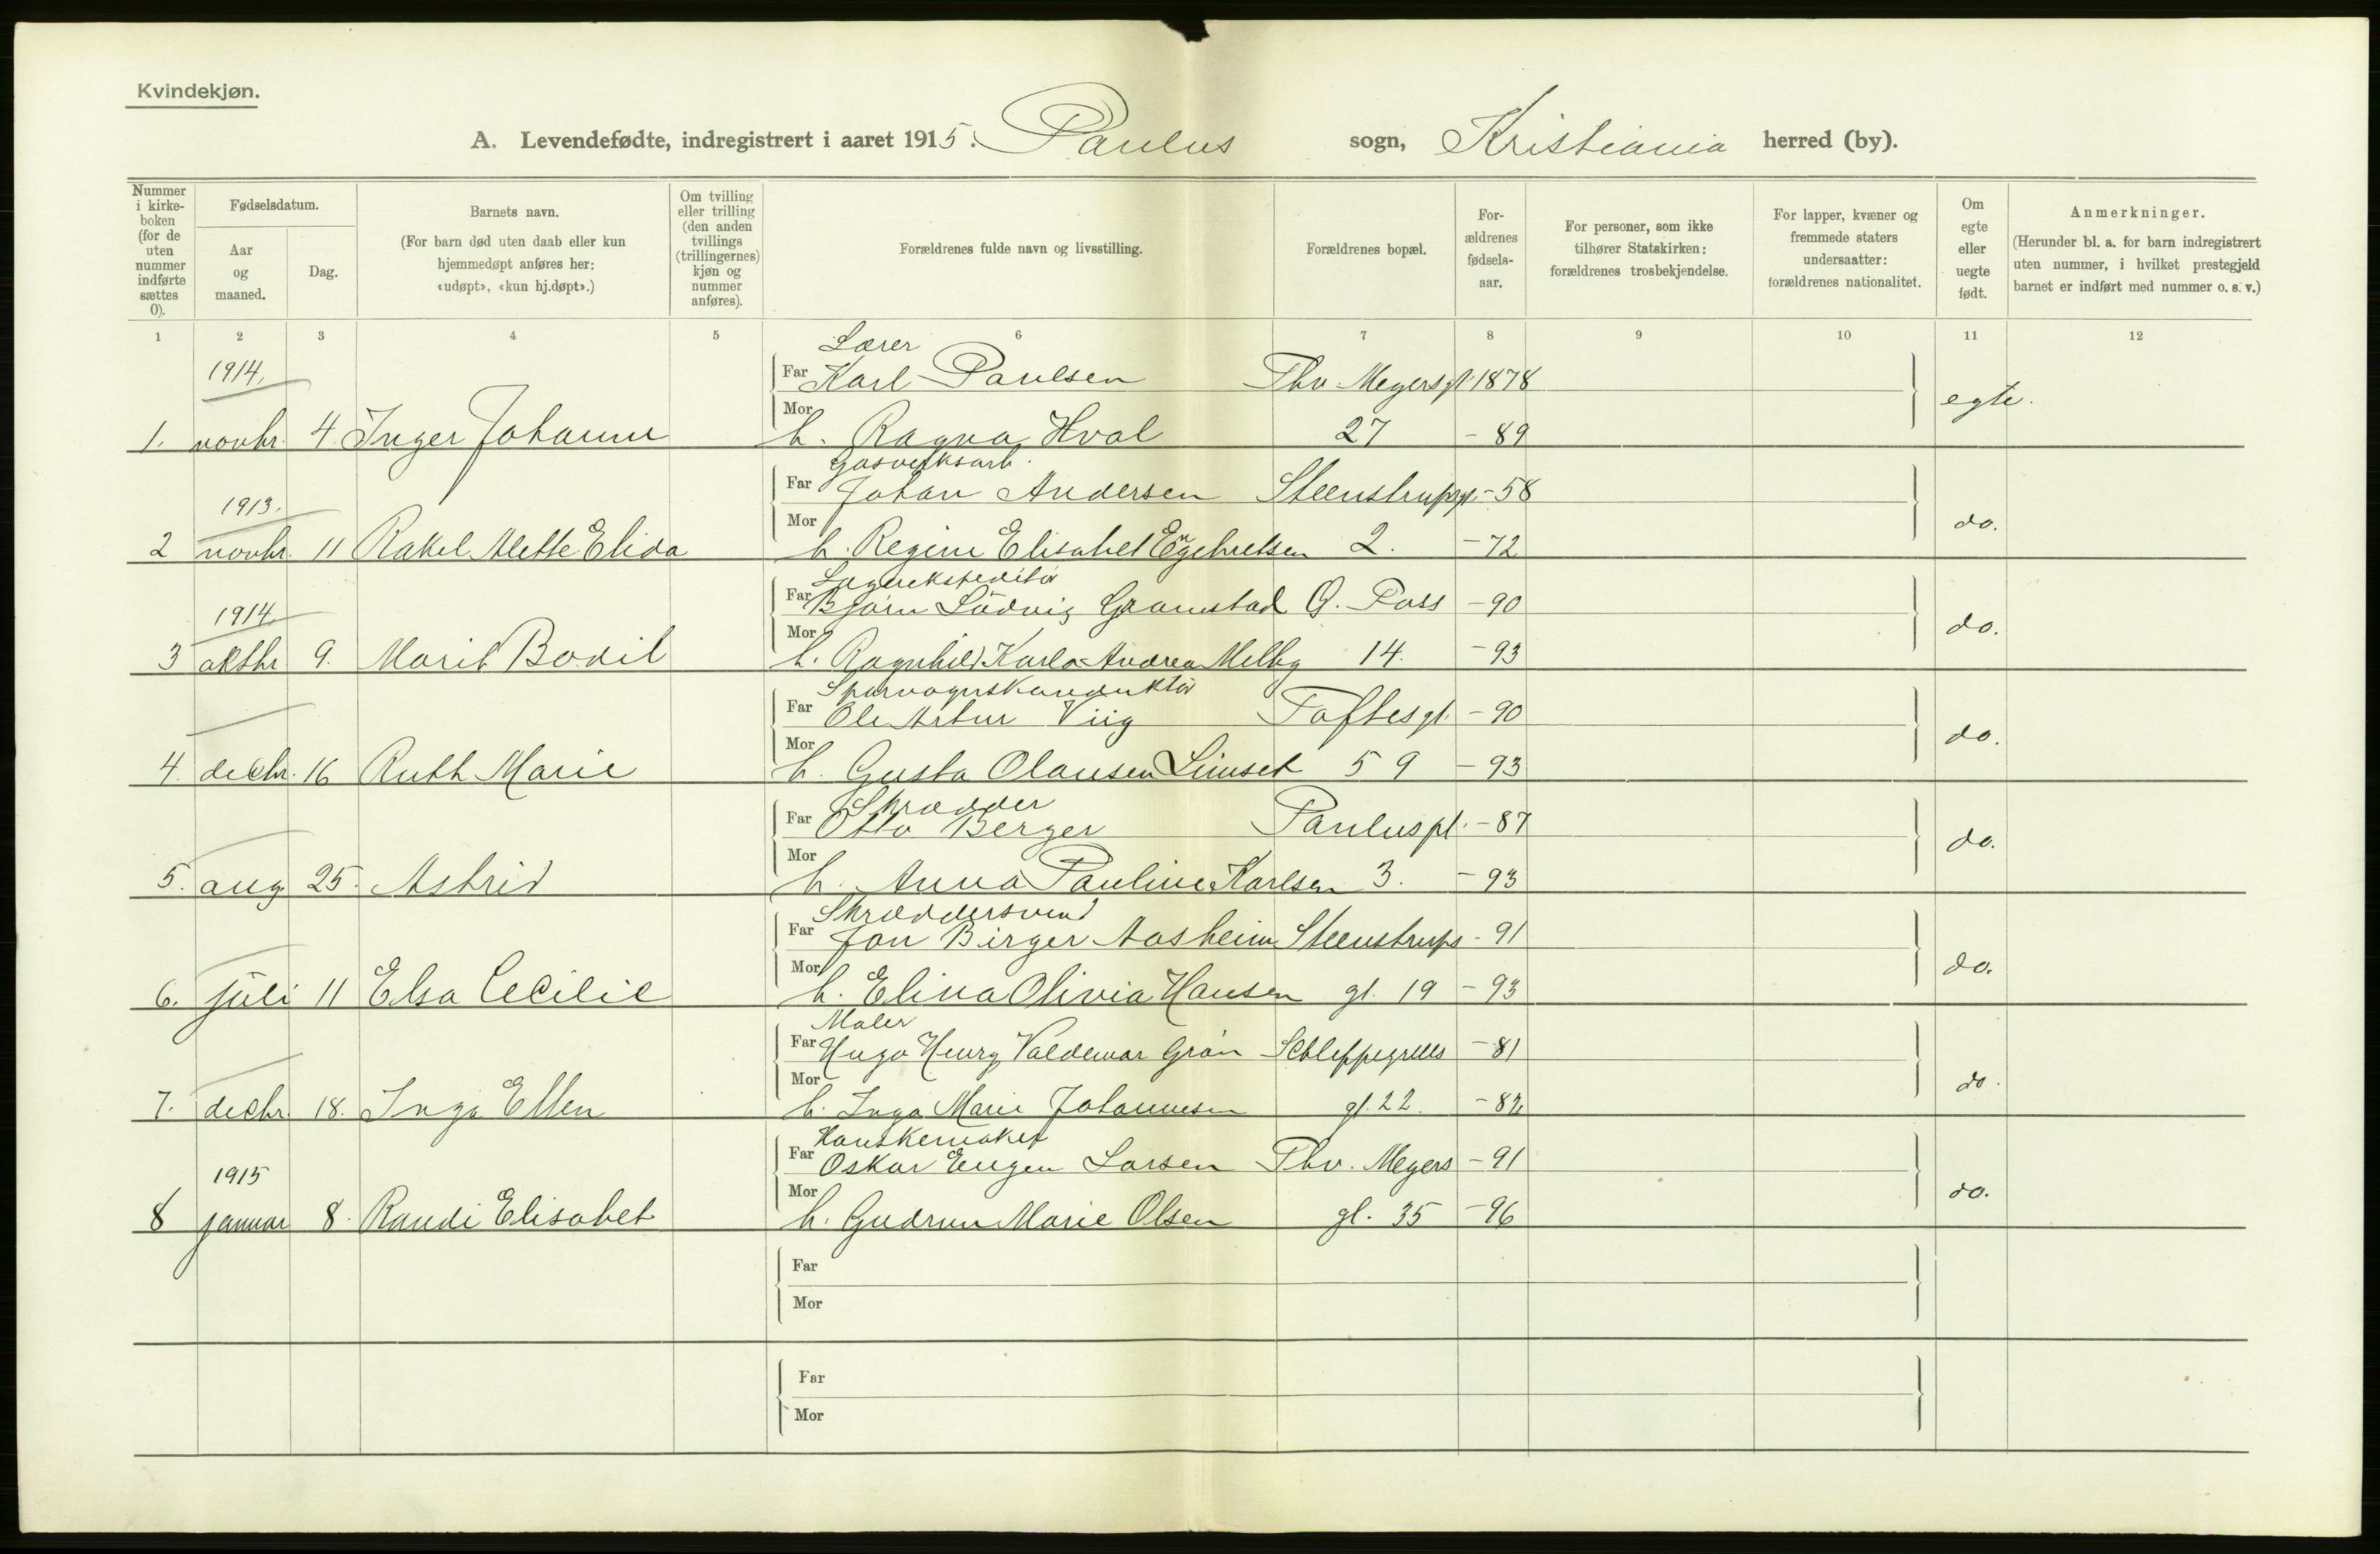 Kvindekjøn.
A. Levendefødte, indregistrert i aaret 1915. Paulus sogn, Kristiania herred (by).
Nummer i kirkeboken (for de uten nummer indførte sættes 0).
Fødselsdatum.
Aar og maaned.
Dag.
Barnets navn.
(For barn død uten daab eller kun hjemmedøpt anføres her: «udøpt», «kun hj.døpt».)
Om tvilling eller trilling (den anden tvillings (trillingernes) kjøn og nummer anføres).
Forældrenes fulde navn og livsstilling.
Forældrenes bopæl.
For-ældrenes fødsels-aar.
For personer, som ikke tilhører Statskirken: forældrenes trosbekjendelse.
For lapper, kvæner og fremmede staters undersaatter: forældrenes nationalitet.
Om egte eller uegte født.
Anmerkninger.
(Herunder bl. a. for barn indregistrert uten nummer, i hvilket prestegjeld barnet er indført med nummer o. s. v.)
1 2 3 4 5 6 7 8 9 10 11 12
Lærer
1914. Far Karl Paulsen Thv. Meyersgt. 1878 egte.
1. novbr. 4. Inger Johanne Mor h. Ragna Hval 27 -89
Gasverksarb.
1913. Far Johan Andersen Steenstrupsgt. -58 do.
2 novbr. 11 Rakel Alette Elida Mor h. Regine Elisabet Engebretsen 2. -72
Lagerekspeditør
1914. Far Bjørn Ludvig Gramstad G. Pass -90 do.
3 oktbr 9. Marit Bodil Mor h. Ragnhild Karla Andrea Melby 14. -93
Sporvognskonduktør
Far Ole Artur Viig Toftesgt. -90 do.
4. decbr. 16 Ruth Marie Mor h. Gusta Olausen Limset 59 -93
Skrædder
Far Otto Berger Pauluspl. -87 do.
5. aug 25. Astrid Mor h. Anna Pauline Karlsen 3. -93
Skræddersvend
Far Jon Birger Aasheim Steenstrups -91 do.
6. juli 11 Elsa Cecilie Mor h. Elina Olivia Hansen gt. 19 -93
Maler
Far Hugo Henry Valdemar Grøn Schleppegrells -81 do.
7. decbr. 18. Inga Ellen Mor h. Inga Marie Johannesen gt. 22. -82
Hanskemaker
1915 Far Oskar Eugen Larsen Thv. Meyers -91 do.
8 januar 8. Randi Elisabet Mor h. Gudrun Marie Olsen gt. 35 -96
Far
Mor
Far
Mor